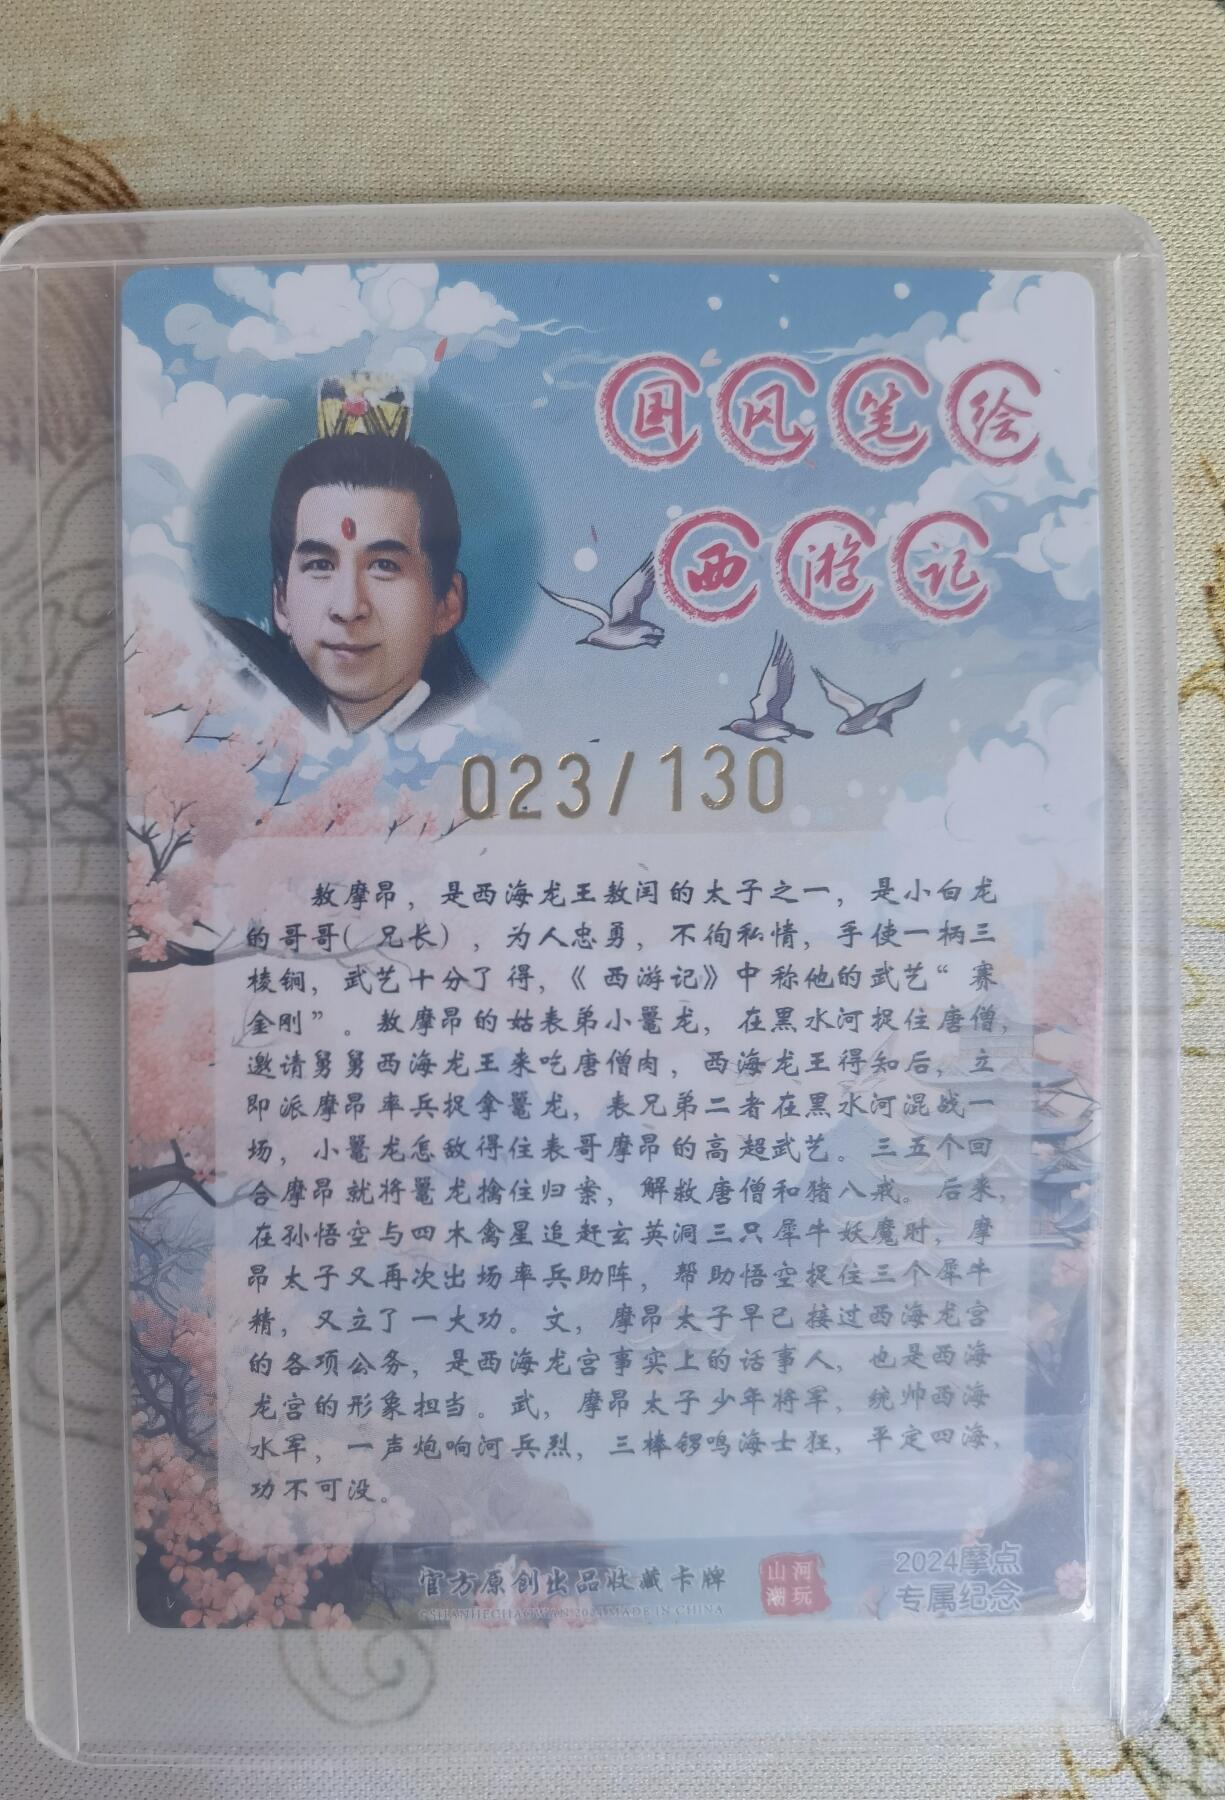 国风笔绘
西游记
023/130
敖摩昂，是西海龙王敖闰的太子之一，是小白龙
的哥哥（兄长），为人忠勇，不徇私情，手使一柄三
棱锏，武艺十分了得，《西游记》中称他的武艺“赛
金刚”。敖摩昂的姑表弟小鼍龙，在黑水河捉住唐僧，
邀请舅舅西海龙王来吃唐僧肉，西海龙王得知后，立
即派摩昂率兵捉拿鼍龙，表兄弟二者在黑水河混战一
场，小鼍龙怎敌得住表哥摩昂的高超武艺。三五个回
合摩昂就将鼍龙擒住归案，解救唐僧和猪八戒。后来，
在孙悟空与四木禽星追赶玄英洞三只犀牛妖魔时，摩
昂太子又再次出场率兵助阵，帮助悟空捉住三个犀牛
精，又立了一大功。文，摩昂太子早已接过西海龙宫
的各项公务，是西海龙宫事实上的话事人，也是西海
龙宫的形象担当。武，摩昂太子少年将军，统帅西海
水军，一声炮响河兵烈，三棒锣鸣海士狂，平定四海，
功不可没。
官方原创出品收藏卡牌
©SHANHECHAOWAN 2024 MADE IN CHINA
山河
潮玩
2024摩点
专属纪念